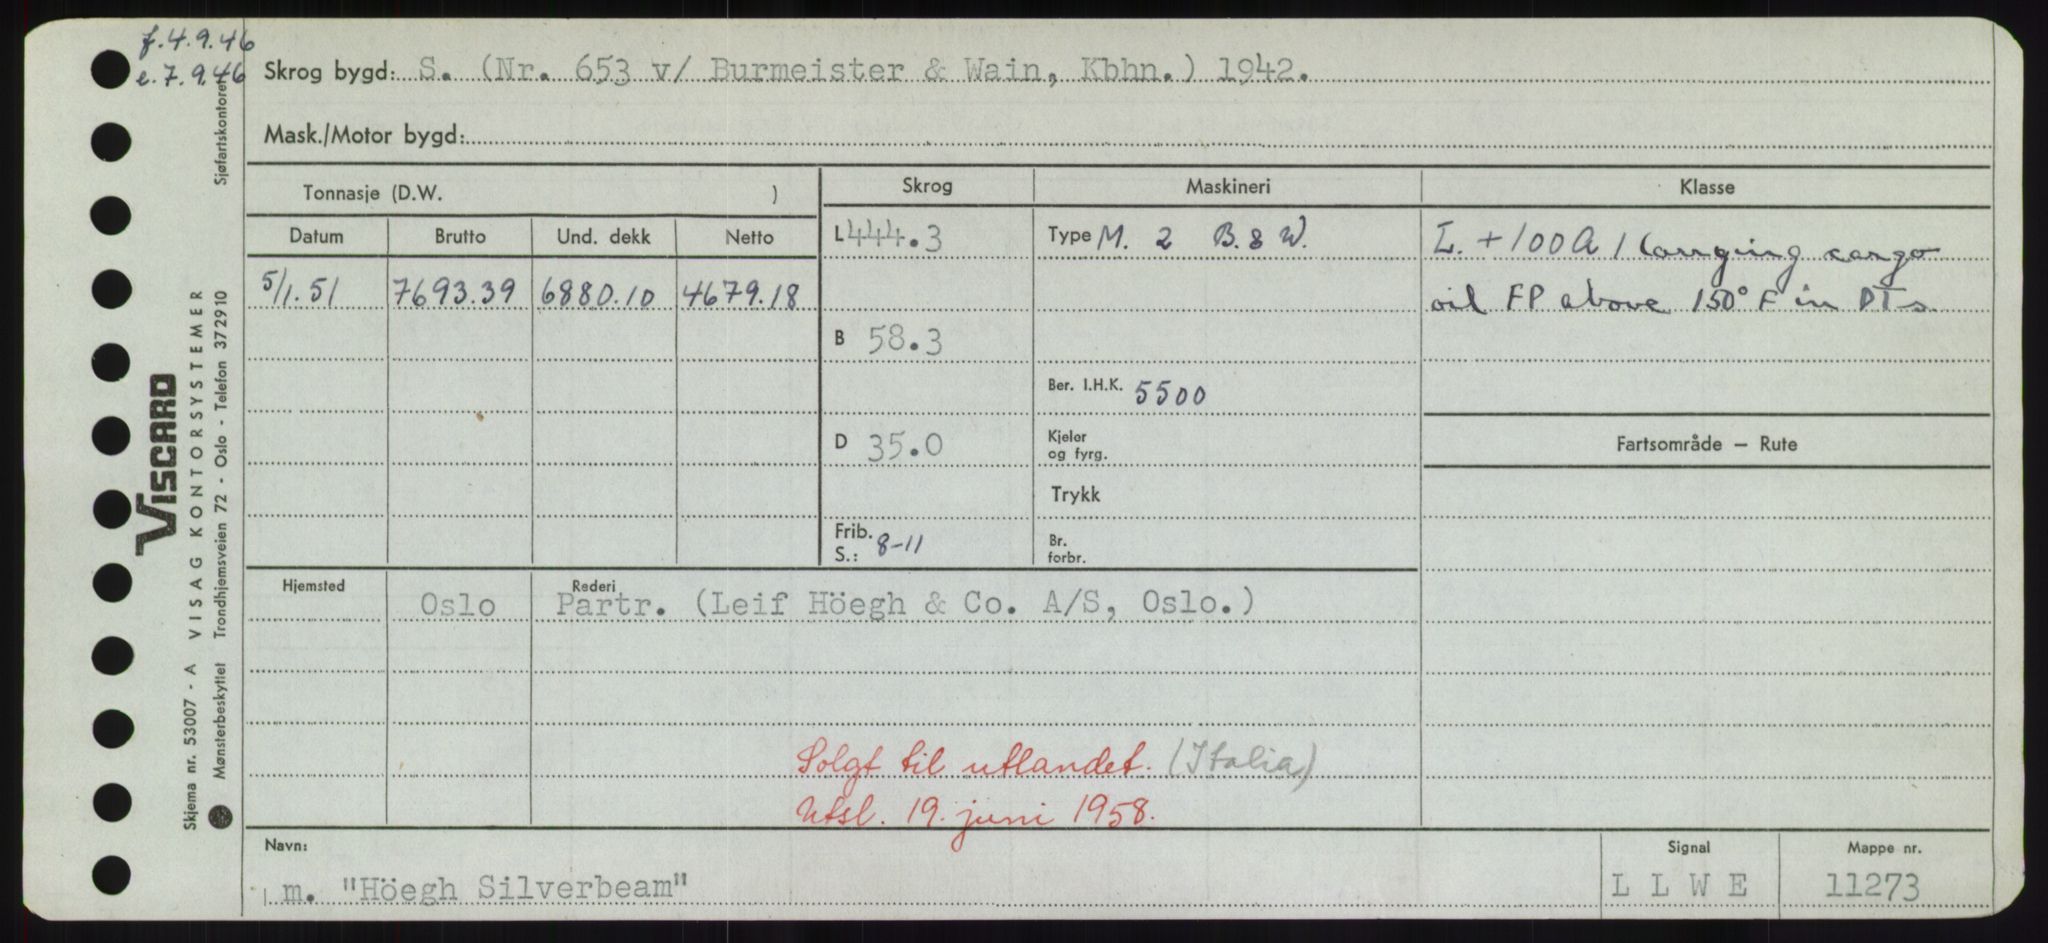 f. 4.9.46
e. 7.9.46
Skrog bygd: S. (Nr. 653 v/ Burmeister & Wain, Kbhn.) 1942.
Mask./Motor bygd:
Tonnasje (D.W. )
Skrog
Maskineri
Klasse
Datum
Brutto
Und. dekk
Netto
L 444.3
Type M. 2 B. & W.
L. +100A1 Carrying cargo
5/1.51 7693.39 6880.10 4679.18
oil FP above 150° F in DTs
B 58.3
Ber. I.H.K. 5500
D 35.0
Kjeler
og fyrg.
Fartsområde — Rute
Trykk
Frib.
S.: 8-11
Br.
forbr.
Hjemsted
Oslo
Rederi
Partr. (Leif Höegh & Co. A/S, Oslo.)
Solgt til utlandet. (Italia)
Utsl. 19. juni 1958.
Navn:
m. "Höegh Silverbeam"
Signal
L L W E
Mappe nr.
11273
Skjema nr. 53007 - A VISAG KONTORSYSTEMER
Mønsterbeskyttet Trondhjemsveien 72 - Oslo - Telefon 372910
Sjøfartskontoret
VISCARD